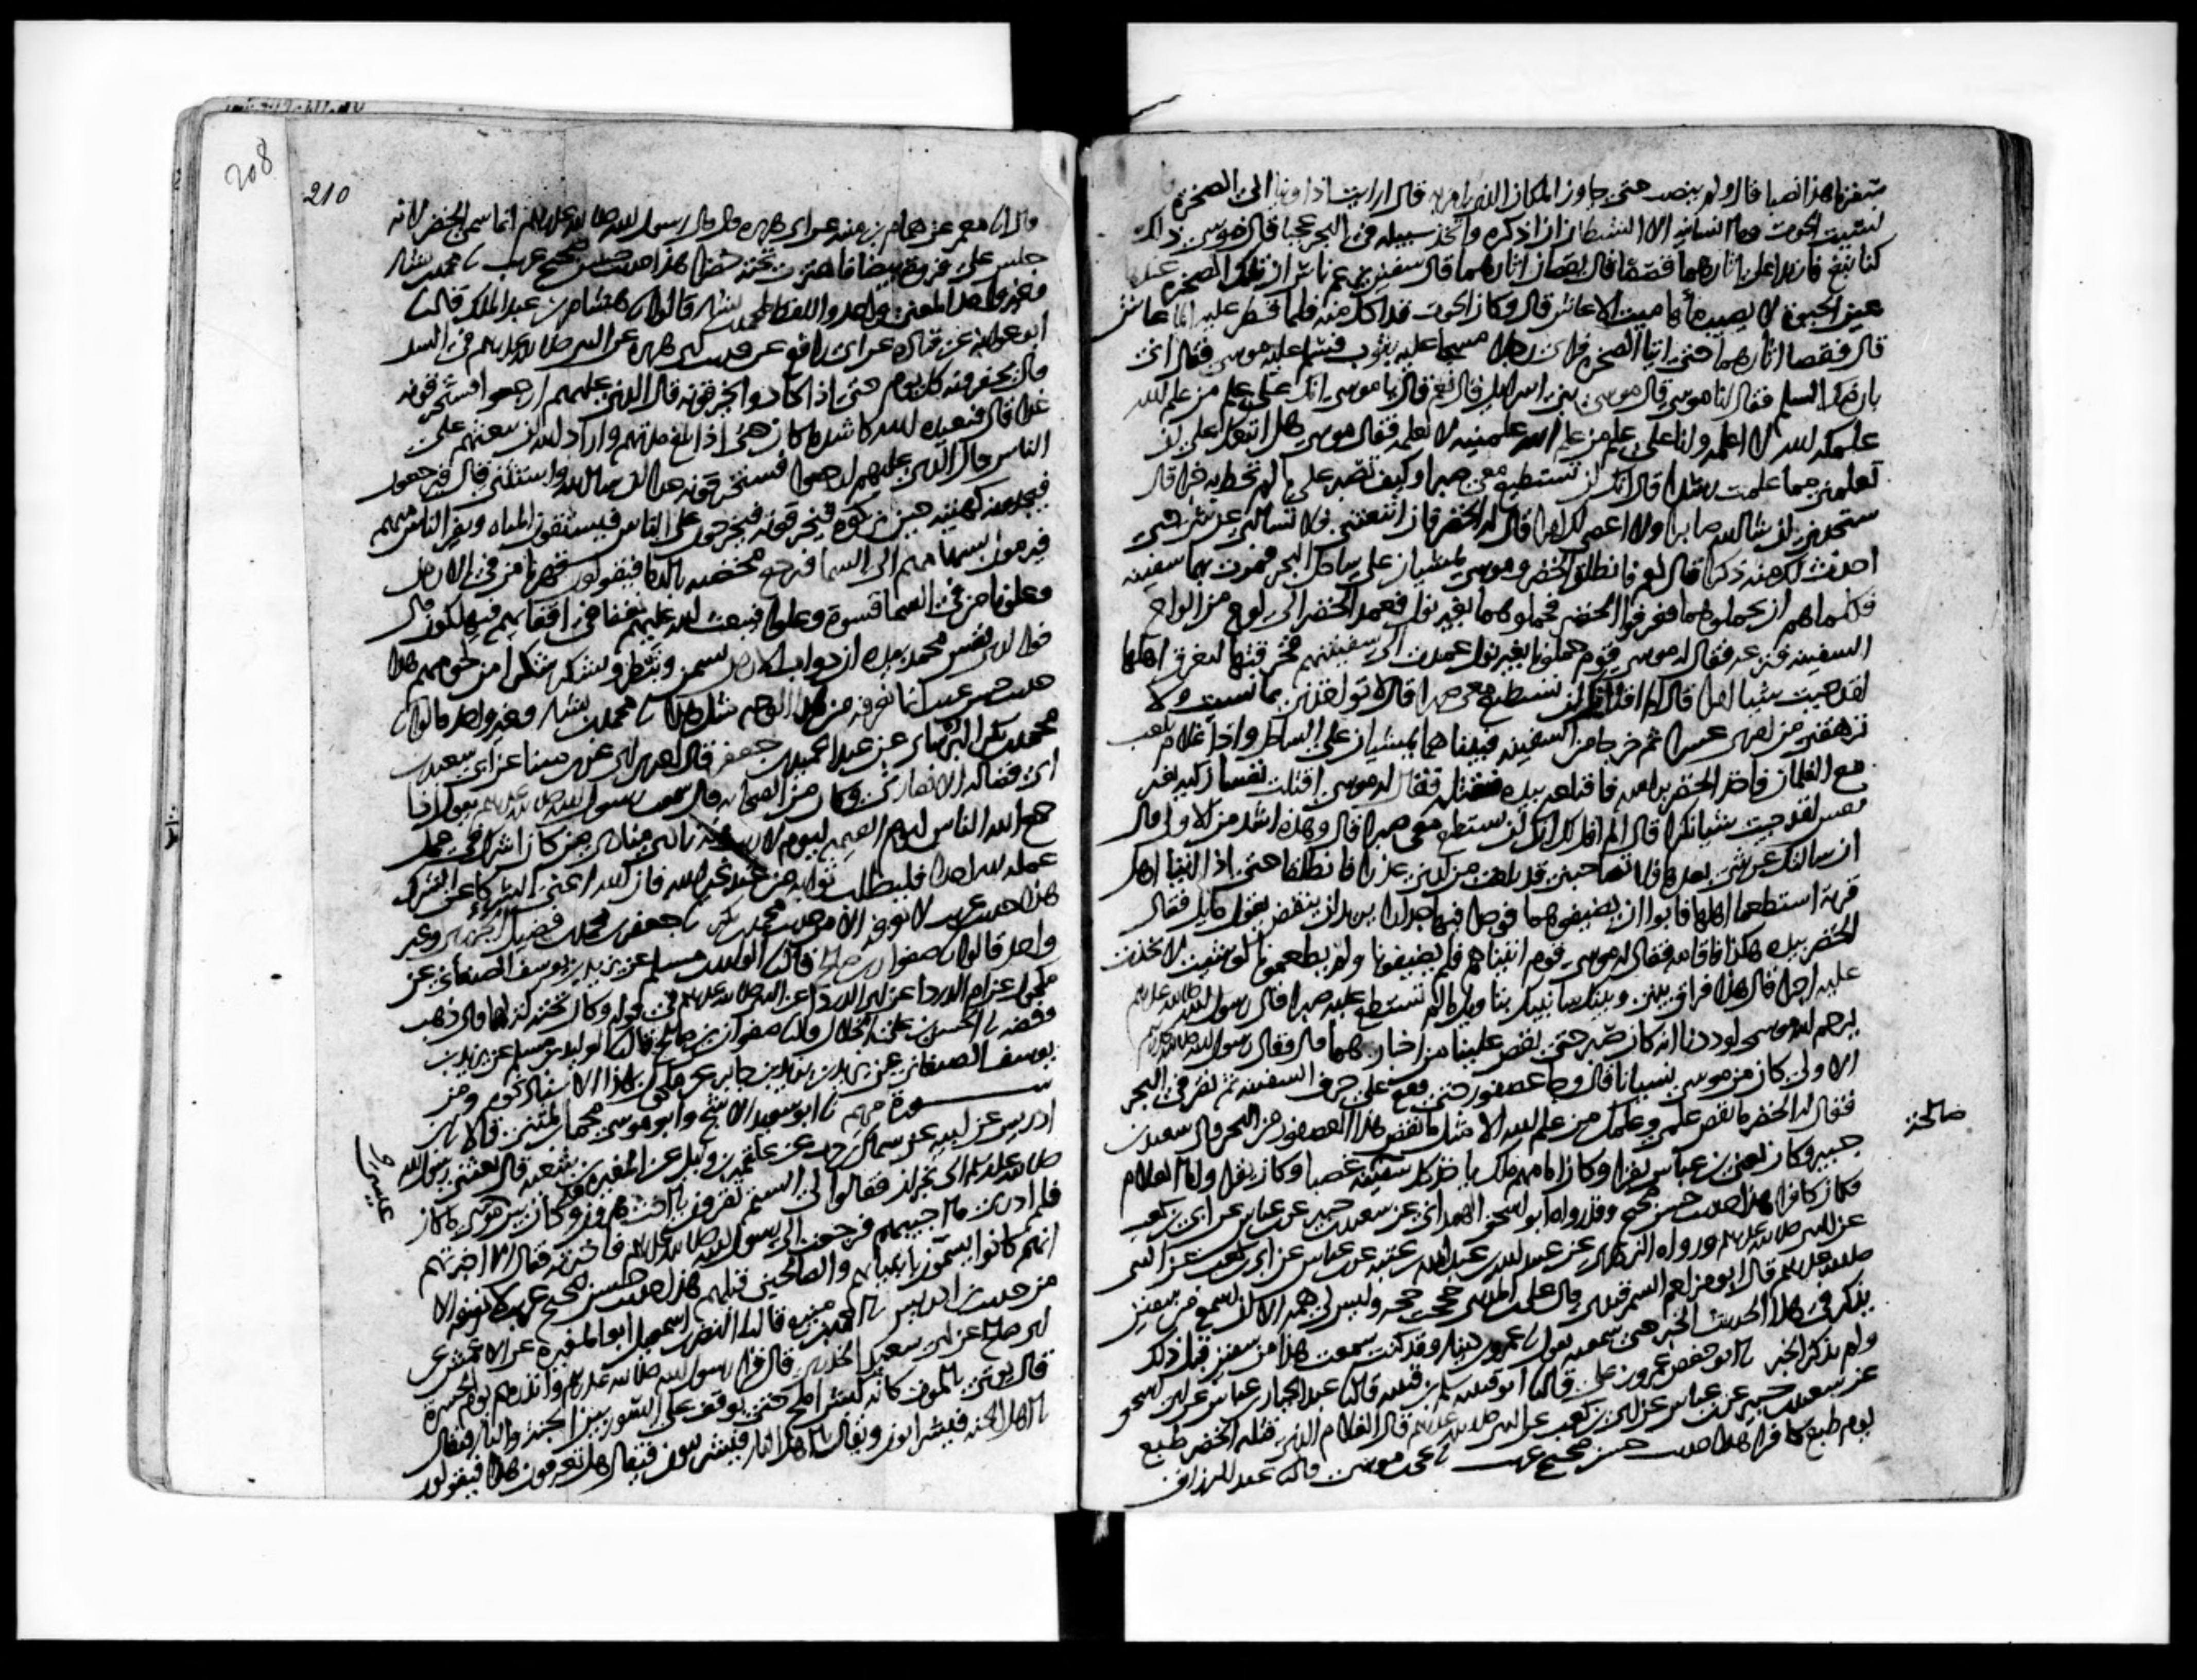 سفرنا هذا نصبا قال ولم ينصب حتى جاوز المكان الذي امر به قال ارايت اذ اوينا الى الصخرة
نسيت الحوت وما انسانيه الا الشيطان ان اذكره واتخذ سبيله في البحر عجبا قال موسى ذلك
كنا نبغ فارتدا على اثارهما قصصا قال يقصان اثارهما قال سفين يزعم ناس ان تلك الصخرة عندها
عين الحيوة لا يصيب ماؤها ميت الا عاش قال وكان الحوت قد اكل منه فلما قطر عليه الما عاش
قال فقصا اثارهما حتى اتيا الصخرة فراى رجلا مسجا عليه بثوب فسلم عليه موسى فقال انى
بارضك السلم فقال انا موسى قال موسى بني اسرايل قال نعم قال يا موسى انك على علم من علم الله
علمكه الله لا اعلمه وانا على علم من علم الله علمنيه لا تعلمه فقال موسى هل اتبعك على ان
تعلمني مما علمت رشدا قال انك لن تستطيع معي صبرا وكيف تصبر على ما لم تحط به خبرا قال
ستجدني ان شا الله صابرا ولا اعصي لك امرا قال له الخضر فان اتبعتني فلا تسالني عن شي حتى
احدث لك منه ذكرا قال نعم فانطلق الخضر وموسى يمشيان على ساحل البحر فمرت بهما سفينة
فكلماهم ان يحملوهما فعرفوا الخضر فحملوهما بغير نول فعمد الخضر الى لوح من الواح
السفينة فنزعه فقال له موسى قوم حملونا بغير نول عمدت الى سفينتهم فخرقتها لتغرق اهلها
لقد جيت شيا امرا قال الم اقل انك لن تستطيع معي صبرا قال لا تواخذني بما نسيت ولا
ترهقني من امري عسرا ثم خرجا من السفينة فبينا هما يمشيان على الساحل واذا غلام يلعب
مع الغلمان فاخذ الخضر براسه فاقتلعه بيده فقتله فقال له موسى اقتلت نفسا زكية بغير
نفس لقد جيت شيا نكرا قال الم اقل لك انك لن تستطيع معي صبرا قال وهذه اشد من الاولى قال
ان سالتك عن شي بعدها فلا تصاحبني قد بلغت من لدني عذرا فانطلقا حتى اذا اتيا اهل
قرية استطعما اهلها فابوا ان يضيفوهما فوجدا فيها جدارا يريد ان ينقض يقول مايل فقال
الخضر بيده هكذا فاقامه فقال له موسى قوم اتيناهم فلم يضيفونا ولم يطعمونا لو شيت لاتخذت
عليه اجرا قال هذا فراق بيني وبينك سانبيك بتاويل ما لم تستطع عليه صبرا قال رسول الله صلى الله عليه وسلم
يرحم الله موسى لوددنا انه كان صبر حتى يقص علينا من اخبارهما قال وقال رسول الله صلى الله عليه وسلم
الاولى كان من موسى نسيانا قال وجا عصفور حتى وقع على حرف السفينة ثم نقر في البحر
فقال له الخضر ما نقص علمي وعلمك من علم الله الا مثل ما نقص هذا العصفور من البحر قال سعيد بن
جبير وكان يعني بن عباس يقرا وكان امامهم ملك ياخذ كل سفينة غصبا وكان يقرا واما الغلام
فكان كافرا هذا حديث حسن صحيح وقد رواه ابو اسحق الهمداني عن سعيد بن جبير عن بن عباس عن ابي بن كعب
عن النبي صلى الله عليه وسلم ورواه الزهري عن عبيد الله بن عبد الله بن عتبة عن بن عباس عن ابي بن كعب عن النبي
صلى الله عليه وسلم قال ابو مزاحم السمرقندي قال علي بن المديني حججت حجة وليس لي همة الا ان اسمع من سفين
يذكر في هذا الحديث الخبر حتى سمعته يقول نا عمرو بن دينار وقد كنت سمعت هذا من سفين قبل ذلك
ولم يذكر الخبر نا ابو حفص عمرو بن علي قال نا ابو قتيبة سلم بن قتيبة قال نا عبد الجبار بن عباس عن ابي اسحق
عن سعيد بن جبير عن بن عباس عن ابي بن كعب عن النبي صلى الله عليه وسلم قال الغلام الذي قتله الخضر طبع
يوم طبع كافرا هذا حديث حسن صحيح غريب نا يحيى بن موسى قال نا عبد الرزاق
208
210
قال انا معمر عن همام بن منبه عن ابي هريرة قال قال رسول الله صلى الله عليه وسلم انما سمي الخضر لانه
جلس على فروة بيضا فاهتزت تحته خضرا هذا حديث حسن صحيح غريب نا محمد بن بشار
وغير واحد المعنى واحد واللفظ لمحمد بن بشار قالوا نا هشام بن عبد الملك قال نا
ابو عوانة عن قتادة عن ابي رافع عن حديث ابي هريرة عن النبي صلى الله عليه وسلم في السد
قال يحفرونه كل يوم حتى اذا كادوا يخرقونه قال الذي عليهم ارجعوا فستخرقونه
غدا قال فيعيده الله كاشد ما كان حتى اذا بلغ مدتهم واراد الله ان يبعثهم على
الناس قال الذي عليهم ارجعوا فستخرقونه غدا ان شا الله واستثنى قال فيرجعون
فيجدونه كهيئته حين تركوه فيخرقونه فيخرجون على الناس فيستقون المياه ويفر الناس منهم
فيرمون بسهامهم الى السما فترجع مخضبة بالدما فيقولون قهرنا من في الارض
وعلونا من في السما قسوة وعلوا فيبعث الله عليهم نغفا في اقفايهم فيهلكون قال
فوالذي نفس محمد بيده ان دواب الارض تسمن وتبطر وتشكر شكرا من لحومهم هذا
حديث حسن غريب انما نعرفه من هذا الوجه مثل هذا نا محمد بن بشار وغير واحد قالوا نا
محمد بن بكر البرساني عن عبد الحميد بن جعفر قال اخبرني ابي عن بن مينا عن ابي سعيد بن
ابي فضالة الانصاري وكان من الصحابة قال سمعت رسول الله صلى الله عليه وسلم يقول اذا
جمع الله الناس ليوم القيمة ليوم لا ريب فيه نادى مناد من كان اشرك في عمل
عمله لله احدا فليطلب ثوابه من عند غير الله فان الله اغنى الشركا عن الشرك
هذا حديث غريب لا نعرفه الا من حديث محمد بن بكر نا جعفر بن محمد بن فضيل الجزري وغير
واحد قالوا نا صفوان بن صالح قال نا الوليد بن مسلم عن يزيد بن يوسف الصنعاني عن
مكحول عن ام الدردا عن ابي الدردا عن النبي صلى الله عليه وسلم في قوله وكان تحته كنز لهما قال ذهب
وفضة نا الحسن بن علي الخلال قال نا صفوان بن صالح قال نا الوليد بن مسلم عن يزيد بن
يوسف الصنعاني عن يزيد بن يزيد بن جابر عن مكحول بهذا الاسناد نحوه ومن
سورة مريم نا ابو سعيد الاشج وابو موسى محمد بن المثنى قالا نا بن
ادريس عن ابيه عن سماك بن حرب عن علقمة بن وايل عن المغيرة بن شعبة قال بعثني رسول الله
صلى الله عليه وسلم الى نجران فقالوا لي الستم تقرون يا اخت هرون وكان بين موسى ما كان
فلم ادر ما اجيبهم فرجعت الى رسول الله صلى الله عليه وسلم فاخبرته فقال الا اخبرتهم
انهم كانوا يسمون بانبيايهم والصالحين قبلهم هذا حديث حسن صحيح غريب لا نعرفه الا
من حديث بن ادريس نا احمد بن منيع قال نا النضر بن اسمعيل ابو المغيرة عن الاعمش عن
ابي صالح عن ابي سعيد الخدري قال قرا رسول الله صلى الله عليه وسلم وانذرهم يوم الحسرة
قال يوتى بالموت كانه كبش املح حتى يوقف على السور بين الجنة والنار فيقال
يا اهل الجنة فيشرابون ويقال يا اهل النار فيشرابون فيقال هل تعرفون هذا فيقولون